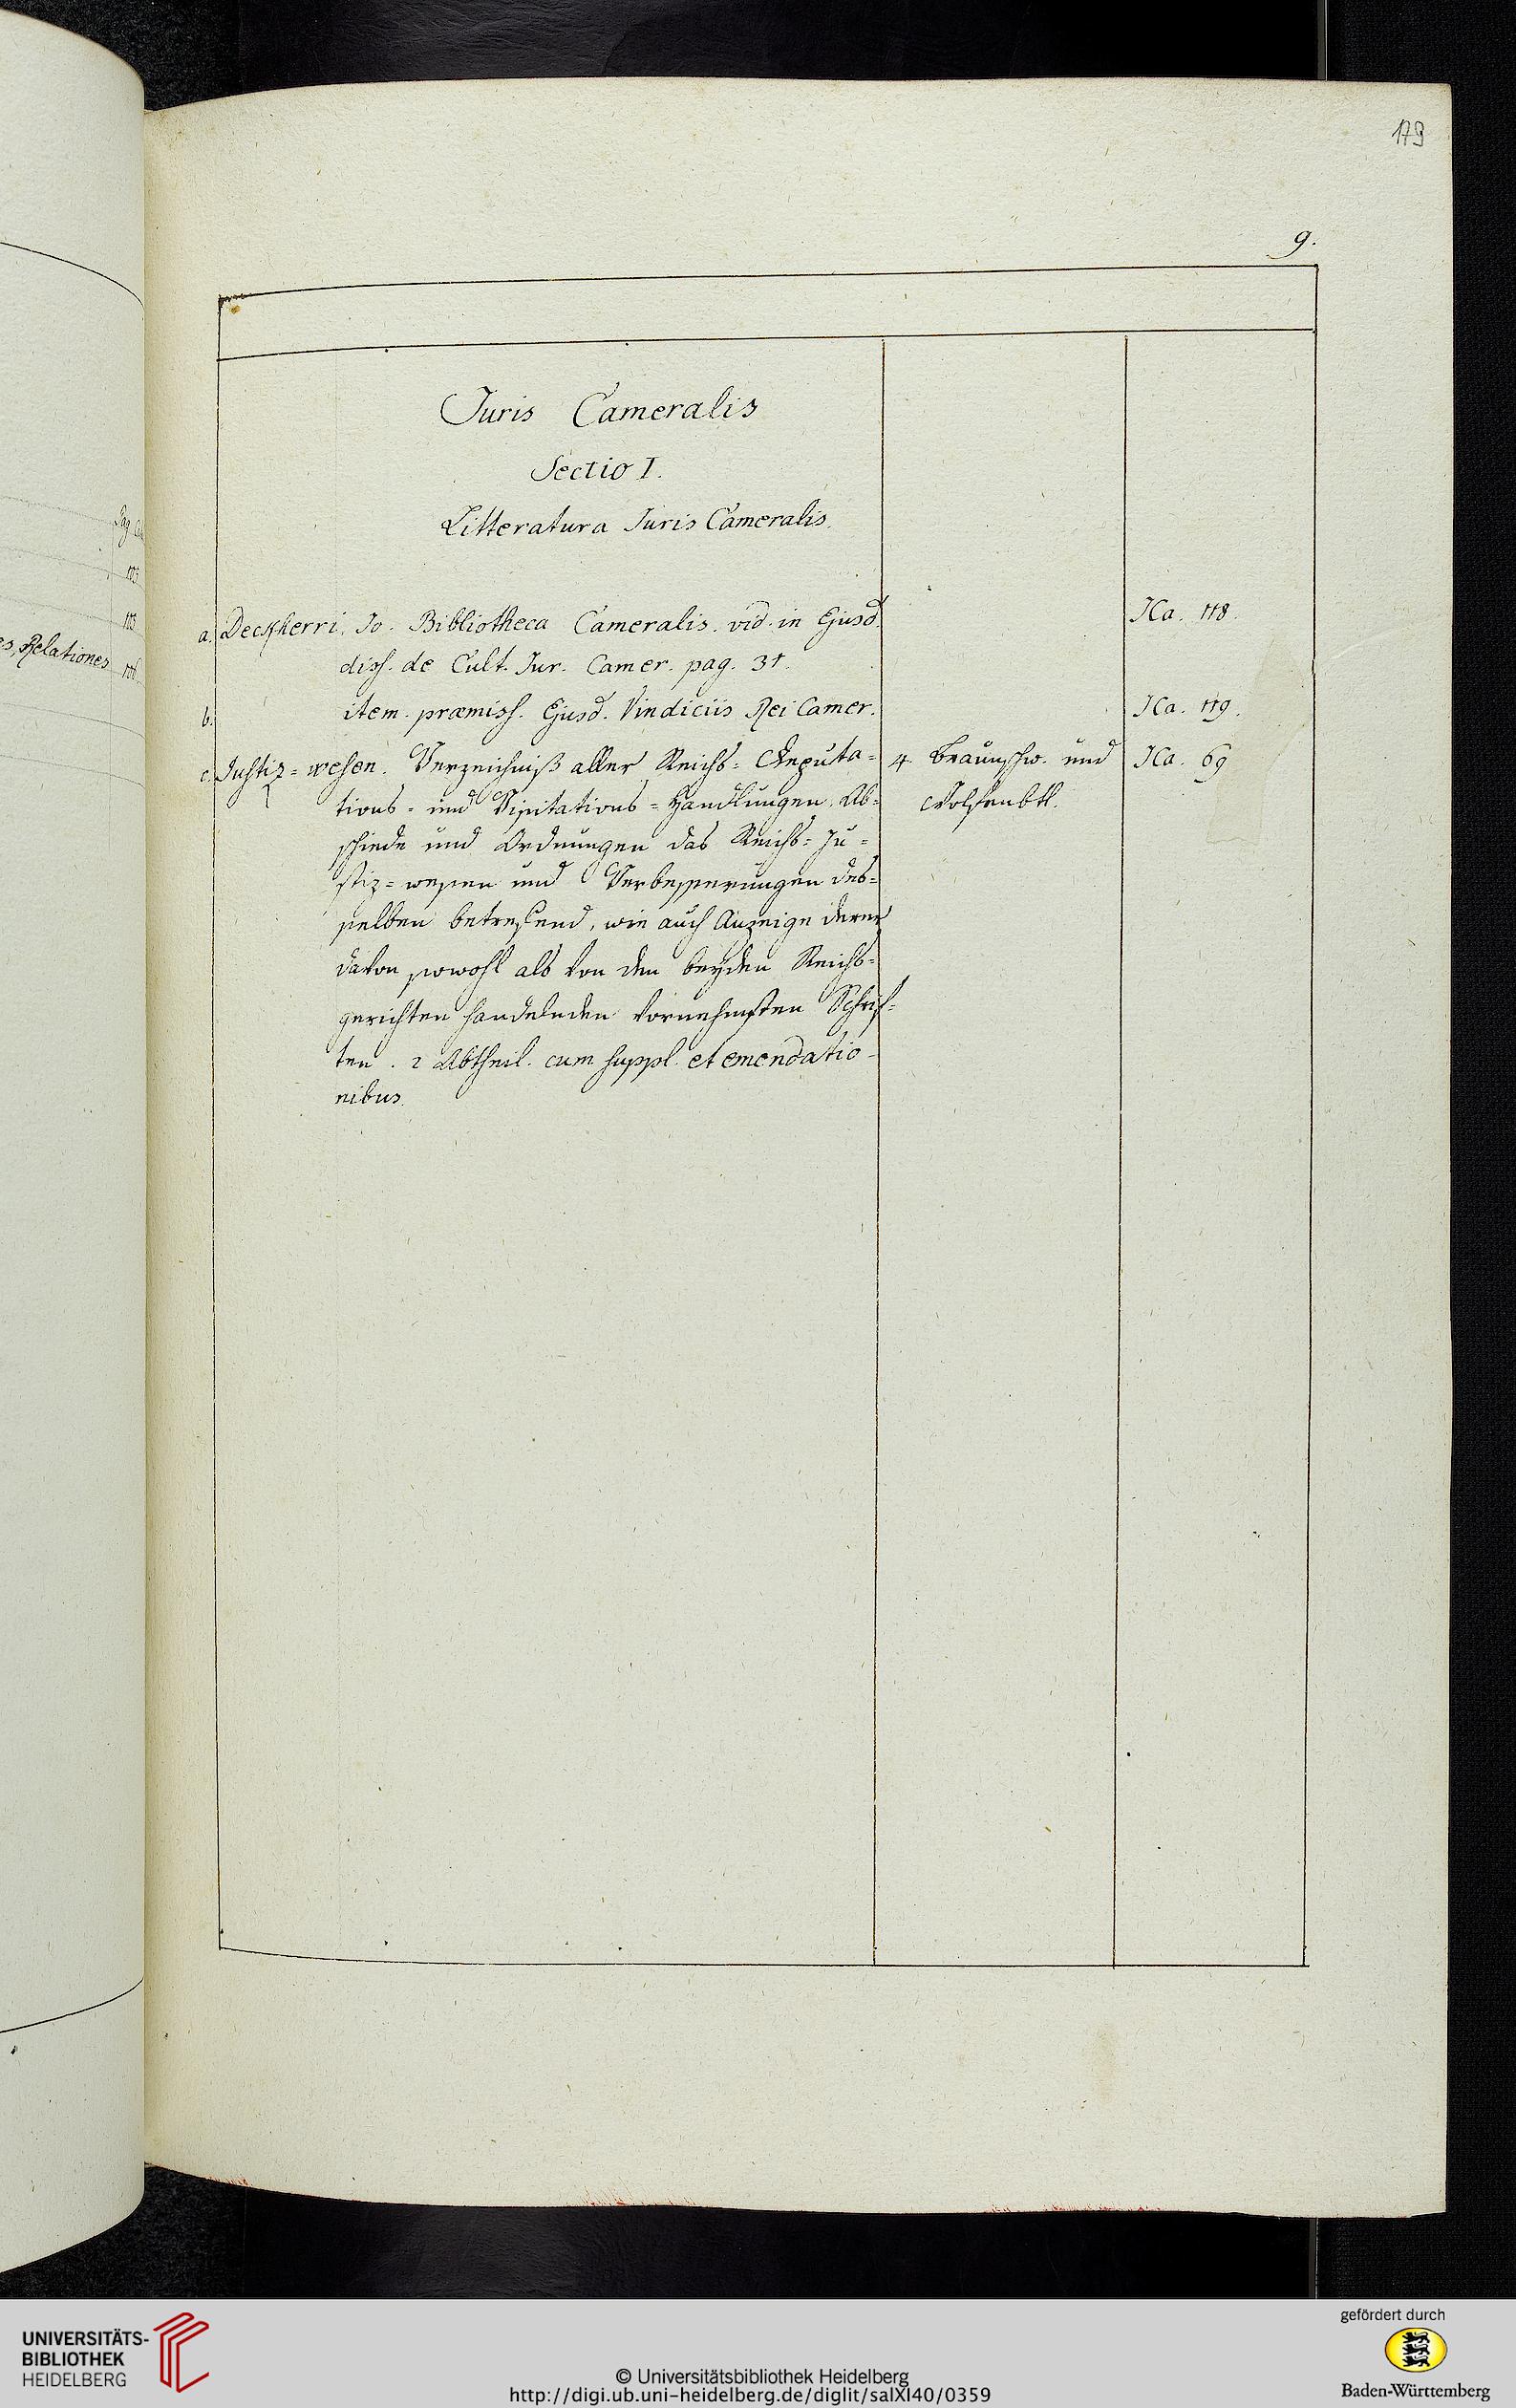 179
9.
Juris Cameralis
Sectio I.
Litteratura Juris Cameralis.
a. Deckherri, Jo. Bibliotheca Cameralis. vid. in Ejusd. JCa. 118.
diss. de Cult. Jur. Camer. pag. 31.
b. item. præmiss. Ejusd. Vindiciis Rei Camer. JCa. 119.
c. Justiz=wesen. Verzeichniß aller Reichs= Deputa= 4 Braunschw. und JCa. 69
tions= und Visitations=Handlungen, Ab= Wolfenbtl.
schiede und Ordnungen das Reichs=Ju=
stiz=wesen und Verbesserungen des=
selben betrefend, wie auch Anzeige derer
davon sowohl als von den beyden Reichs=
gerichten handelnden vornehmsten Schrif=
ten. 2 Abtheil. cum suppl. et emendatio-
nibus.
Pag
103
105
es, Relationes 106
UNIVERSITÄTS-
BIBLIOTHEK
HEIDELBERG
© Universitätsbibliothek Heidelberg
http://digi.ub.uni-heidelberg.de/diglit/salXI40/0359
gefördert durch
Baden-Württemberg